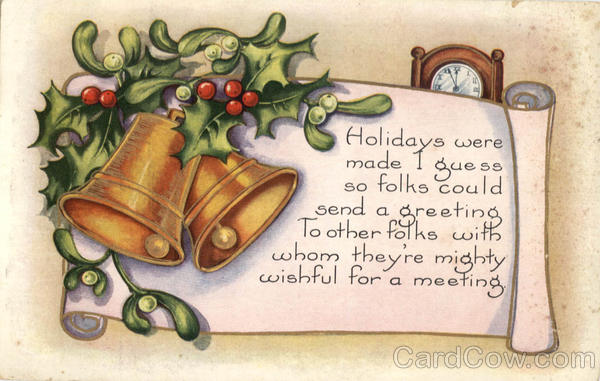 Holidays were
made I guess
so folks could
send a greeting
To other folks with
whom they're mighty
wishful for a meeting.
CardCow.com